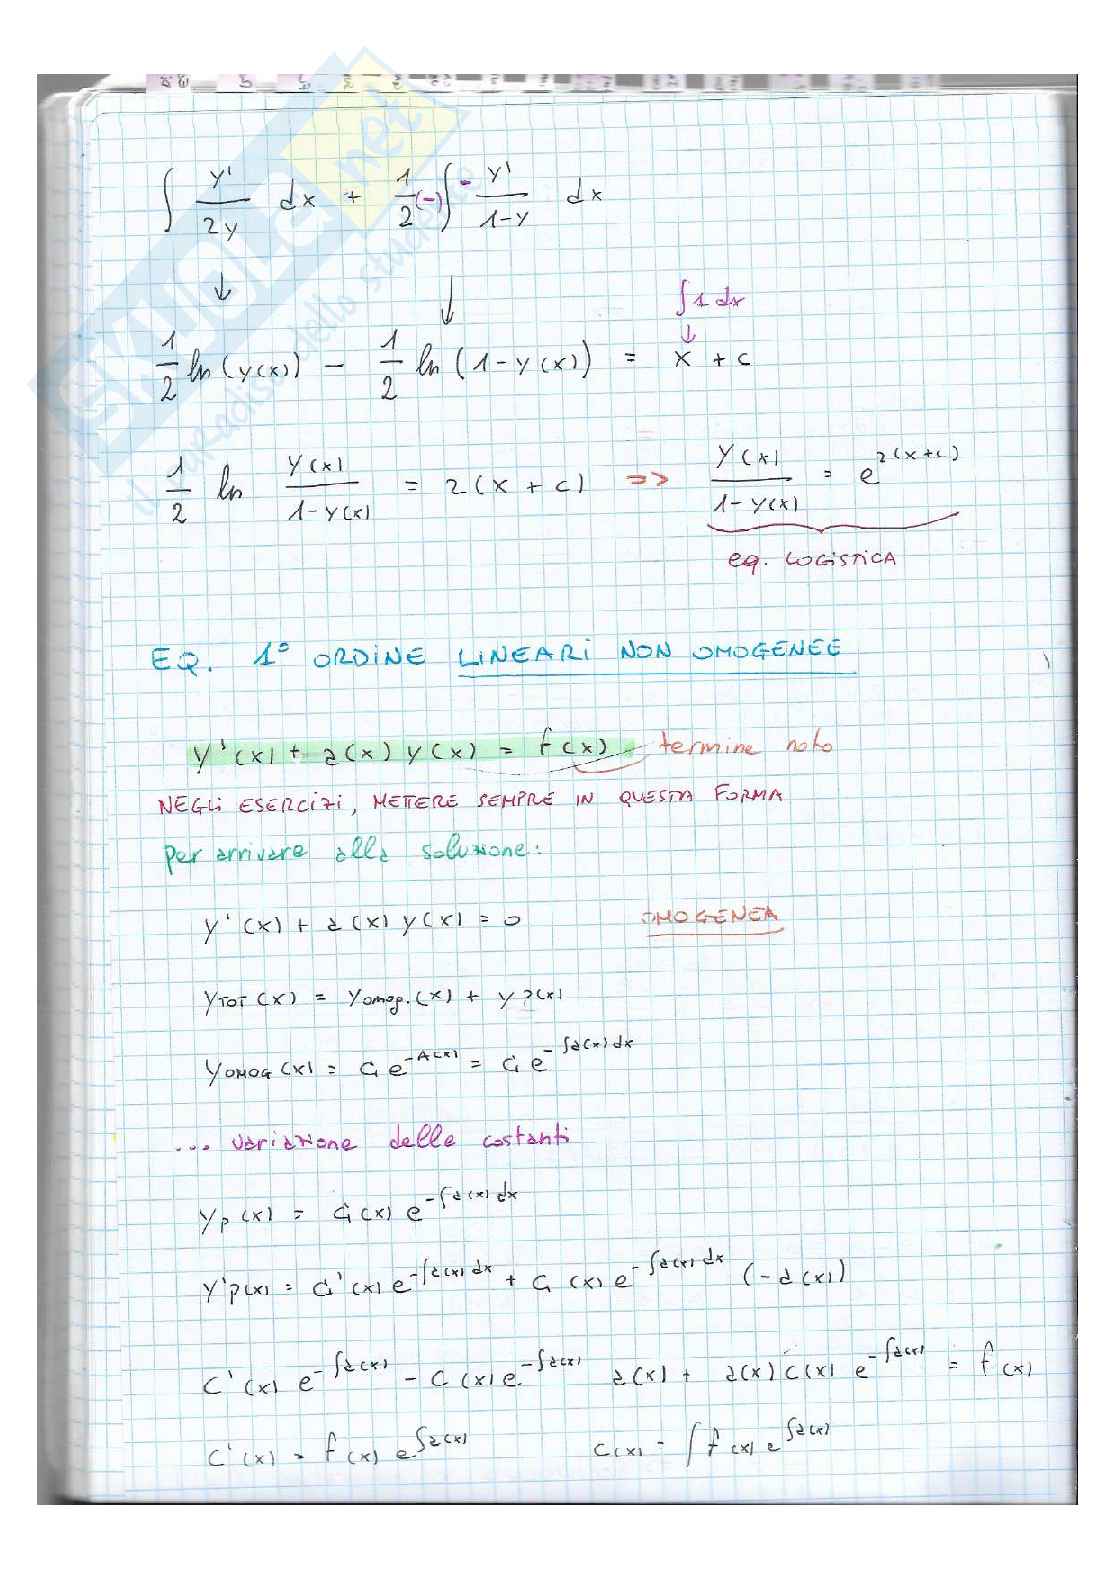 ∫ y'/2y dx + 1/2 (-) ∫ - y'/1-y dx
↓ ↓
∫ 1 dx
↓
1/2 ln (y(x)) - 1/2 ln (1-y(x)) = x + c
1/2 ln y(x)/1-y(x) = 2(x+c) => y(x)/1-y(x) = e^2(x+c)
eq. LOGISTICA
EQ. 1° ORDINE LINEARI NON OMOGENEE
y'(x) + a(x) y(x) = f(x) termine noto
NEGLI ESERCIZI, METTERE SEMPRE IN QUESTA FORMA
per arrivare alla soluzione:
y'(x) + a(x) y(x) = 0 OMOGENEA
yTOT(x) = yomog.(x) + yp(x)
yOMOG(x) = C e^-A(x) = C e^-∫a(x)dx
... variazione delle costanti
yp(x) = C(x) e^-∫a(x)dx
y'p(x) = C'(x) e^-∫a(x)dx + C(x) e^-∫a(x)dx (-a(x))
C'(x) e^-∫a(x) - C(x) e^-∫a(x) a(x) + a(x) C(x) e^-∫a(x) = f(x)
C'(x) = f(x) e^∫a(x) C(x) = ∫ f(x) e^∫a(x)
skuola.net